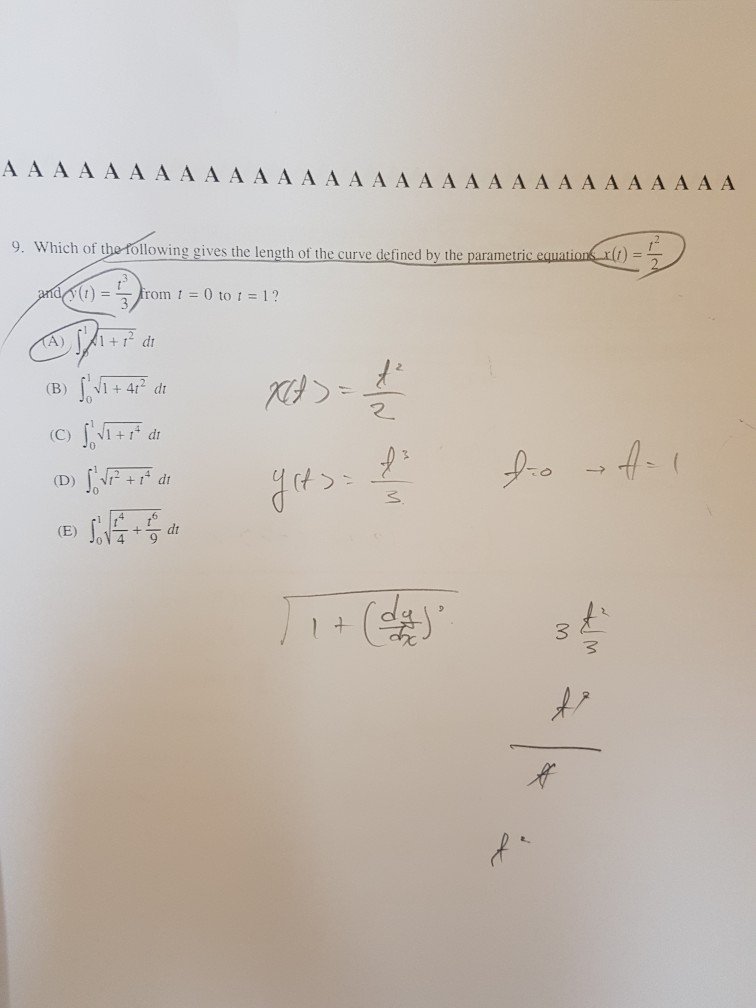 A A A A A A A A A A A A A A A A A A A A A A A A A A A A A A
9. Which of the following gives the length of the curve defined by the parametric equations x(t) = t²/2
and y(t) = t³/3 from t = 0 to t = 1?
(A) ∫₀¹ √(1 + t²) dt
(B) ∫₀¹ √(1 + 4t²) dt
(C) ∫₀¹ √(1 + t⁴) dt
(D) ∫₀¹ √(t² + t⁴) dt
(E) ∫₀¹ √(t⁴/4 + t⁶/9) dt
x(t) = t²/2
y(t) = t³/3
t=0 → t=1
√(1 + (dy/dx)²)
3 t²/3
t²
t
t²